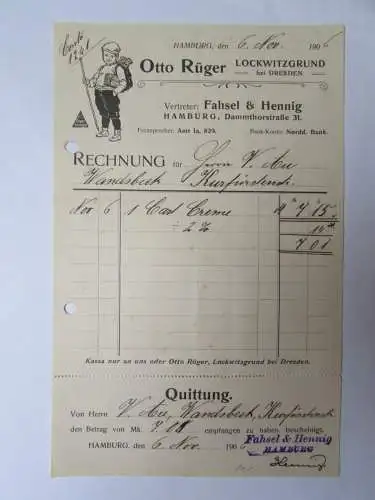 Conto
1241
HAMBURG, den 6. Nov. 1906
Otto Rüger LOCKWITZGRUND
bei DRESDEN.
Vertreter: Fahsel & Hennig
HAMBURG, Dammthorstraße 31.
Fernsprecher: Amt Ia, 829. Bank-Konto: Nordd. Bank.
RECHNUNG für Herrn V. Au
Wandsbeck Kurfürstenstr.
Nov 6 1 Cart Creme M 7 15
÷ 2 % 14
7 01
Kassa nur an uns oder Otto Rüger, Lockwitzgrund bei Dresden.
Quittung.
Von Herrn V. Au, Wandsbeck, Kurfürstenstr.
den Betrag von Mk. 7.01 empfangen zu haben, bescheinigt.
HAMBURG, den 6. Nov. 1906
Fahsel & Hennig
HAMBURG
Hennig